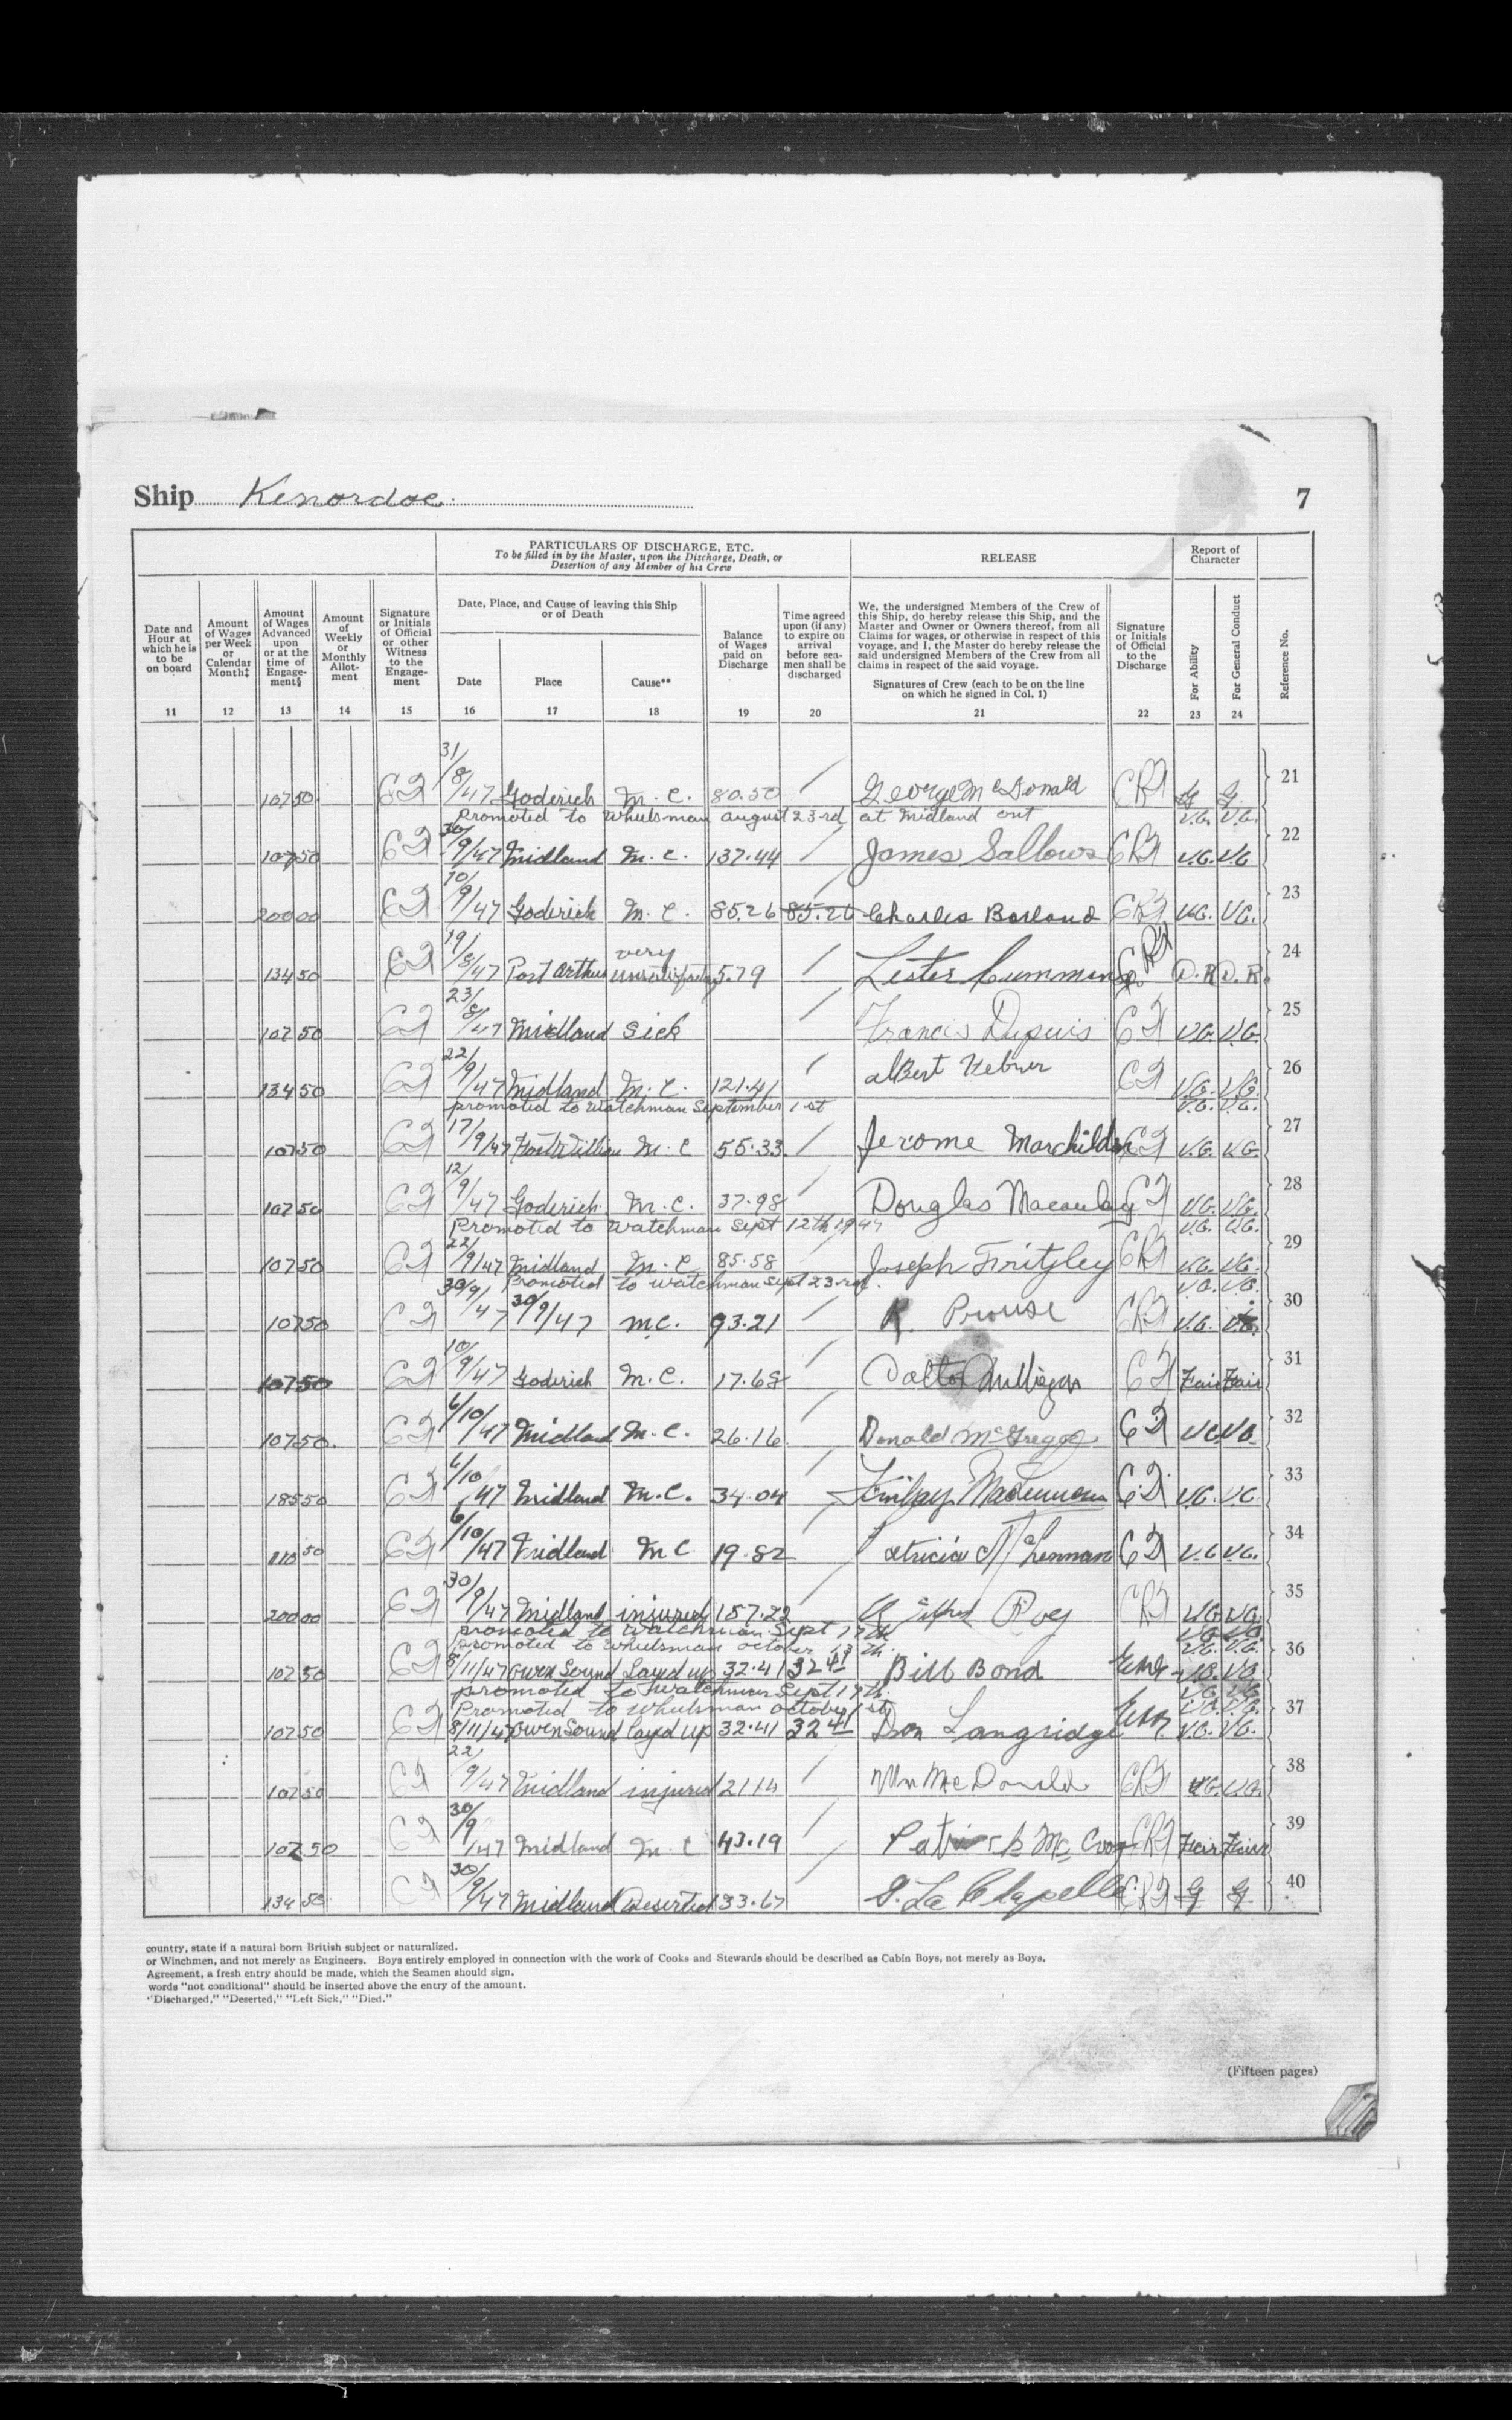 Ship Kenordoc. 7
PARTICULARS OF DISCHARGE, ETC.
To be filled in by the Master, upon the Discharge, Death, or
Desertion of any Member of his Crew
RELEASE
Report of Character
Date and Hour at which he is to be on board
Amount of Wages per Week or Calendar Month‡
Amount of Wages Advanced upon or at the time of Engagement§
Amount of Weekly or Monthly Allotment
Signature or Initials of Official or other Witness to the Engagement
Date, Place, and Cause of leaving this Ship or of Death
Date Place Cause**
Balance of Wages paid on Discharge
Time agreed upon (if any) to expire on arrival before seamen shall be discharged
We, the undersigned Members of the Crew of
this Ship, do hereby release this Ship, and the
Master and Owner or Owners thereof, from all
Claims for wages, or otherwise in respect of this
voyage, and I, the Master do hereby release the
said undersigned Members of the Crew from all
claims in respect of the said voyage.
Signatures of Crew (each to be on the line
on which he signed in Col. 1)
Signature or Initials of Official to the Discharge
For Ability
For General Conduct
Reference No.
11 12 13 14 15 16 17 18 19 20 21 22 23 24
107 50 CD 31/8/47 Goderich M.C. 80.50 / George McDonald CRD G G 21
Promoted to Wheelsman August 23rd at Midland ont V.G. V.G.
107 50 CD 30/9/47 Midland M.C. 137.44 / James Sallows CRD V.G. V.G 22
200 00 CD 10/9/47 Goderich M.C. 85.26 85.26 Charles Borland CRD V.G. V.G. 23
134 50 CD 19/8/47 Port Arthur very unsatisfactory 5.79 / Lester Cummings D.R D.R. 24
107 50 CD 23/8/47 Midland Sick / Francis Dupuis CD V.G. V.G. 25
134 50 CD 22/9/47 Midland M.C. 121.41 / Albert Hebner CD V.G. V.G. 26
promoted to Watchman September 1st V.G. V.G.
107 50 CD 17/9/47 Fort William M.C 55.33 / Jerome Marchildon CD V.G. V.G. 27
107 50 CD 12/9/47 Goderich M.C. 37.98 / Douglas Macaulay CD V.G. V.G. 28
Promoted to Watchman Sept 12th 1947 V.G. V.G.
107 50 CD 22/9/47 Midland M.C 85.58 / Joseph Fritzley CRD V.G. V.G. 29
Promoted to Watchman Sept 23rd. V.G. V.G.
107 50 CD 30/9/47 30/9/47 M.C. 93.21 / R. Prouse CRD V.G. V.G. 30
107 50 CD 10/9/47 Goderich M.C. 17.68 / Dalto Mulligan CD Fair Fair 31
107 50. CD 6/10/47 Midland M.C. 26.16 / Donald McGregor CD VG VG 32
185 50 CD 6/10/47 Midland M.C. 34.04 / Finlay CD V.G. V.G. 33
50 CD 6/10/47 Midland M C 19.82 / Patricia McLennan CD V.G V.G. 34
200 00 CD 30/9/47 Midland injured 157.22 / Roy CRD V.G. V.G. 35
promoted to Watchman Sept 17th V.G. V.G.
promoted to Wheelsman October 13th. V.G. V.G.
107 50 CD 8/11/47 Owen Sound Layed up 32.41 32 41 Bill Bond V.G. V.G 36
promoted to Watchman Sept 17th. V.G. V.G
Promoted to Wheelsman October 1st V.G. V.G.
107 50 CD 8/11/47 Owen Sound layed up 32.41 32 41 Don Langridge V.G. V.G. 37
107 50 CD 22/9/47 Midland injured 21 14 / Wm McDonald CRD V.G. V.G. 38
107 50 CD 30/9/47 Midland M.C 43.19 / Patrick Mc Coog CRD Fair Fair 39
134 50 CD 30/9/47 Midland Deserted 33.67 / G. La Chapelle CRD G G 40
country, state if a natural born British subject or naturalized.
or Winchmen, and not merely as Engineers. Boys entirely employed in connection with the work of Cooks and Stewards should be described as Cabin Boys, not merely as Boys.
Agreement, a fresh entry should be made, which the Seamen should sign.
words "not conditional" should be inserted above the entry of the amount.
"Discharged," "Deserted," "Left Sick," "Died."
(Fifteen pages)